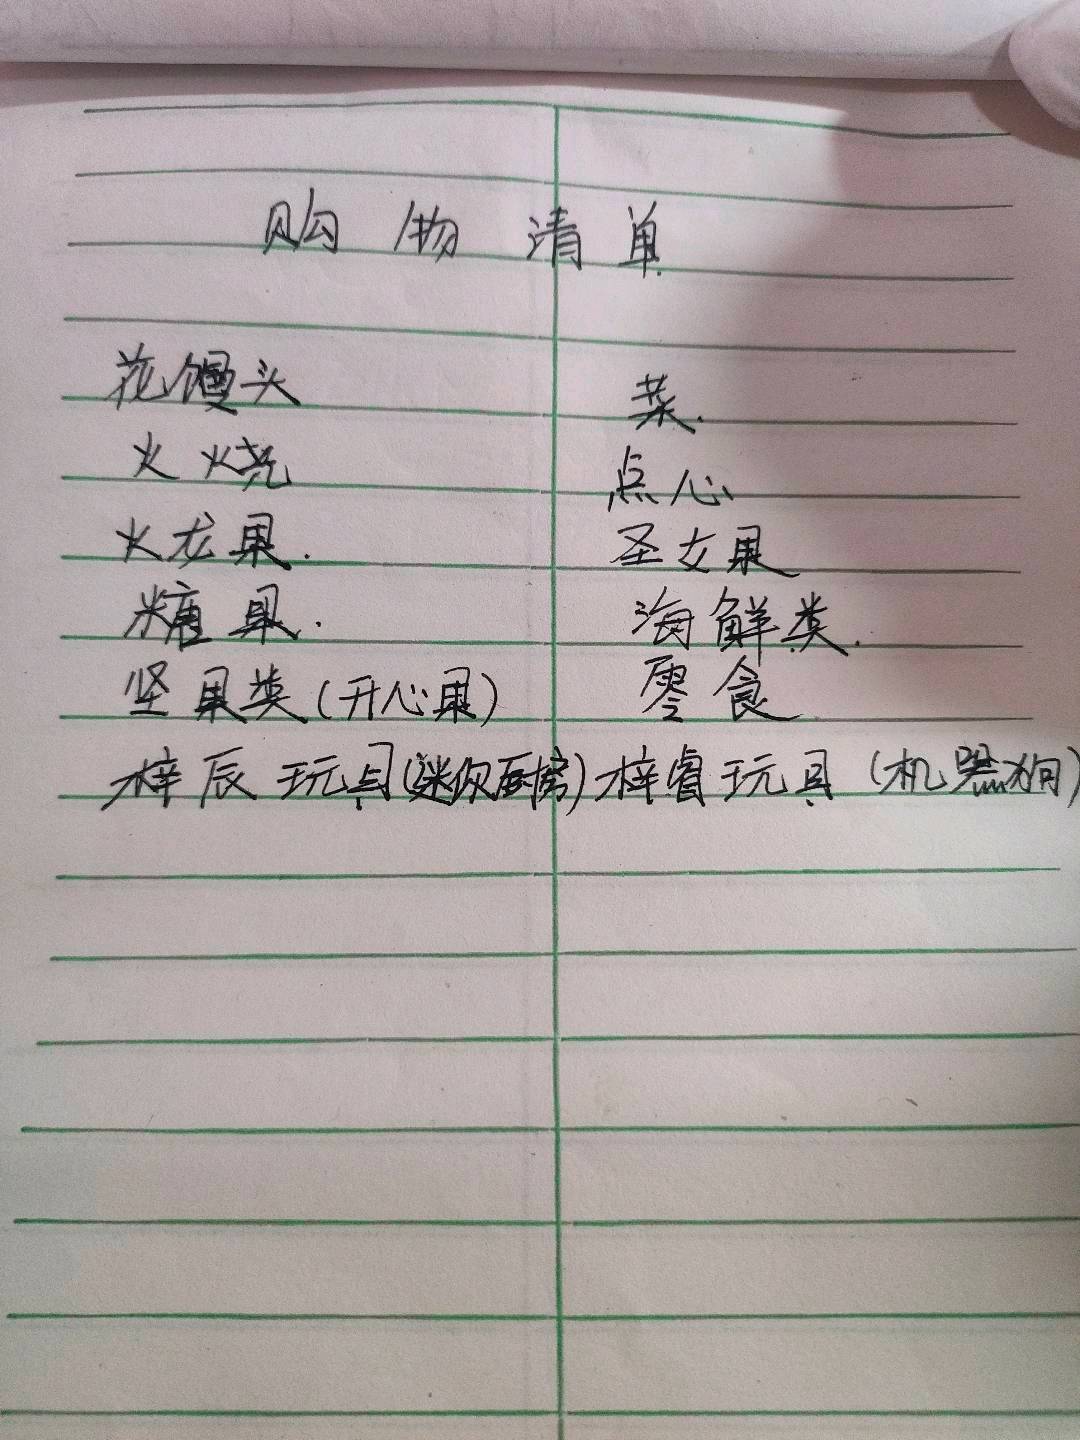 购物清单
花馒头 菜.
火烧 点心
火龙果. 圣女果
糖果. 海鲜类.
坚果类(开心果) 零食
梓辰玩具(迷你厨房) 梓睿玩具(机器狗)